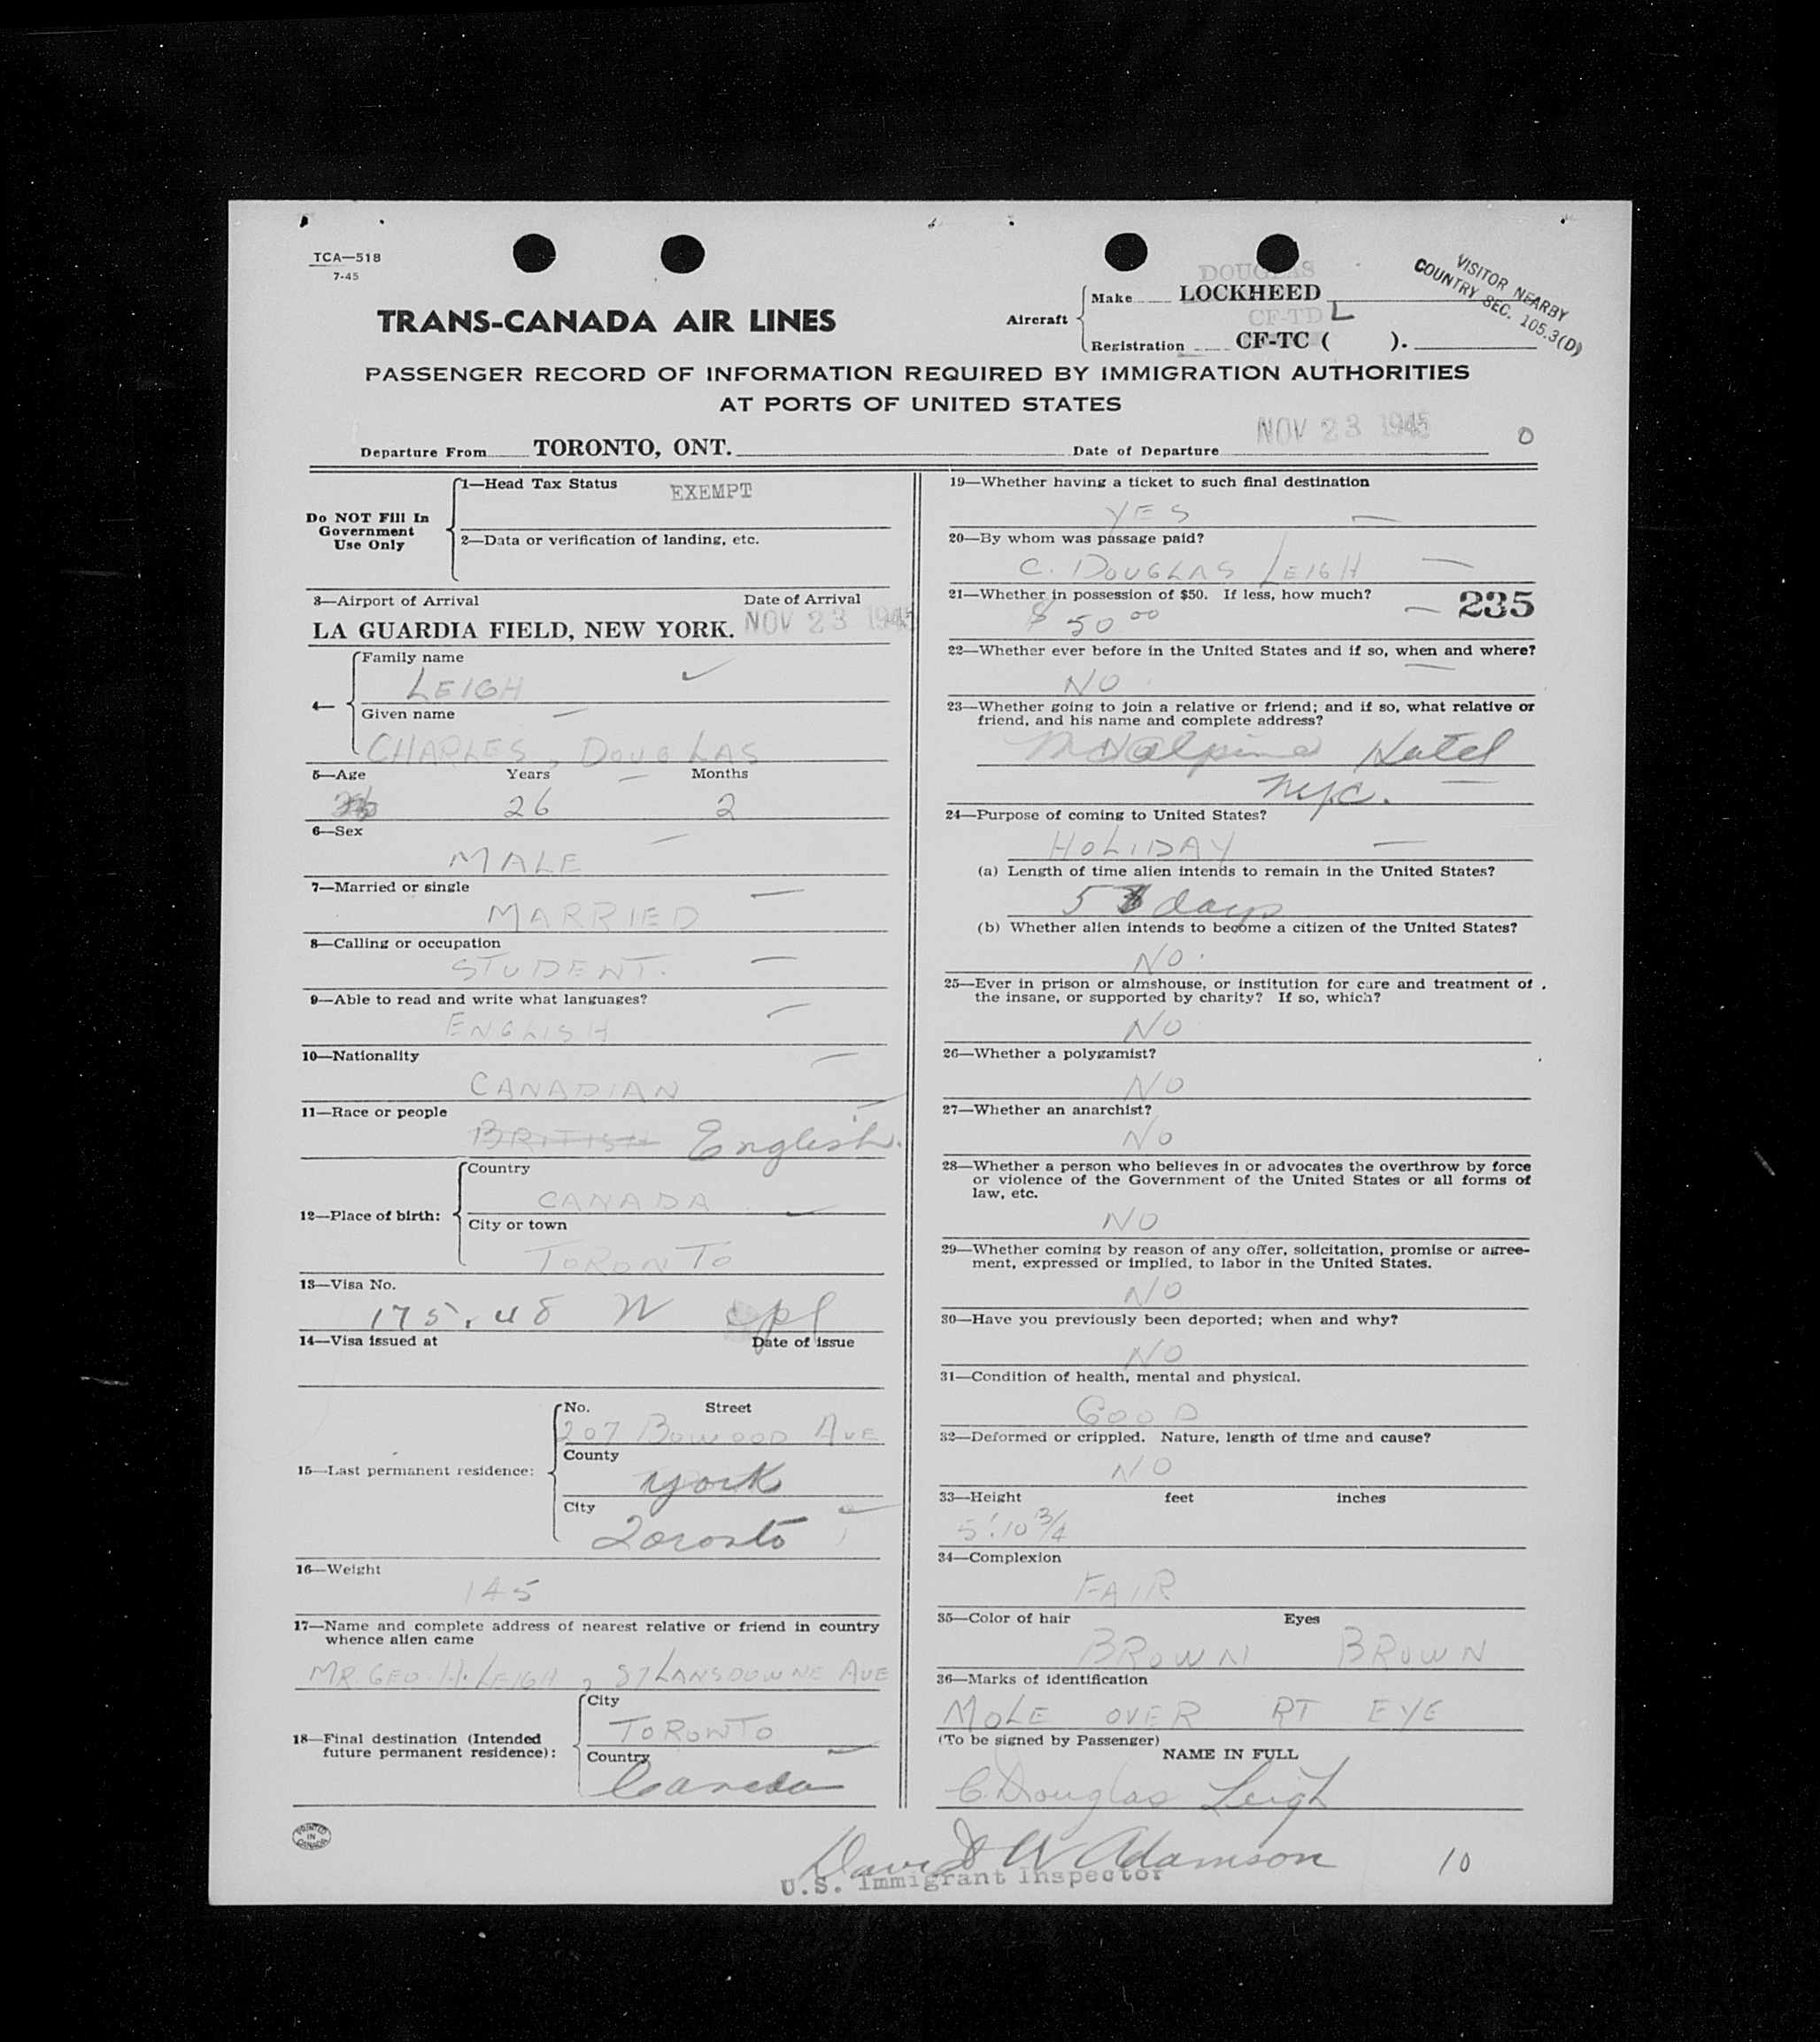 TCA—518
7-45
DOUGLAS
Make LOCKHEED
Aircraft
CF-TD L
Registration CF-TC ( ).
VISITOR NEARBY
COUNTRY SEC. 105.3(D)
TRANS-CANADA AIR LINES
PASSENGER RECORD OF INFORMATION REQUIRED BY IMMIGRATION AUTHORITIES
AT PORTS OF UNITED STATES
NOV 23 1945 0
Departure From TORONTO, ONT. Date of Departure
Do NOT Fill In
Government
Use Only
1—Head Tax Status EXEMPT
2—Data or verification of landing, etc.
3—Airport of Arrival Date of Arrival
LA GUARDIA FIELD, NEW YORK. NOV 23 1945
4—
Family name
LEIGH
Given name
CHARLES, DOUGLAS
5—Age Years Months
26 2
6—Sex
MALE
7—Married or single
MARRIED
8—Calling or occupation
STUDENT.
9—Able to read and write what languages?
ENGLISH
10—Nationality
CANADIAN
11—Race or people
BRITISH English.
12—Place of birth:
Country
CANADA
City or town
TORONTO
13—Visa No.
175.48
14—Visa issued at Date of issue
15—Last permanent residence:
No. Street
207 BOWOOD AVE
County
York
City
Toronto
16—Weight
145
17—Name and complete address of nearest relative or friend in country
whence alien came
MR. GEO. H. LEIGH, 87 LANSDOWNE AVE
18—Final destination (Intended
future permanent residence):
City
TORONTO
Country
Canada
PRINTED
IN
CANADA
19—Whether having a ticket to such final destination
YES
20—By whom was passage paid?
C. DOUGLAS LEIGH
21—Whether in possession of $50. If less, how much?
$ 50 00 235
22—Whether ever before in the United States and if so, when and where?
NO.
23—Whether going to join a relative or friend; and if so, what relative or
friend, and his name and complete address?
McAlpine Hotel
NYC.
24—Purpose of coming to United States?
HOLIDAY
(a) Length of time alien intends to remain in the United States?
5 days
(b) Whether alien intends to become a citizen of the United States?
NO.
25—Ever in prison or almshouse, or institution for care and treatment of
the insane, or supported by charity? If so, which?
NO
26—Whether a polygamist?
NO
27—Whether an anarchist?
NO
28—Whether a person who believes in or advocates the overthrow by force
or violence of the Government of the United States or all forms of
law, etc.
NO
29—Whether coming by reason of any offer, solicitation, promise or agree-
ment, expressed or implied, to labor in the United States.
NO
30—Have you previously been deported; when and why?
NO
31—Condition of health, mental and physical.
GOOD
32—Deformed or crippled. Nature, length of time and cause?
NO
33—Height feet inches
5' 10 3/4
34—Complexion
FAIR
35—Color of hair Eyes
BROWN BROWN
36—Marks of identification
MOLE OVER RT EYE
(To be signed by Passenger)
NAME IN FULL
C. Douglas Leigh
David W Adamson 10
U.S. Immigrant Inspector